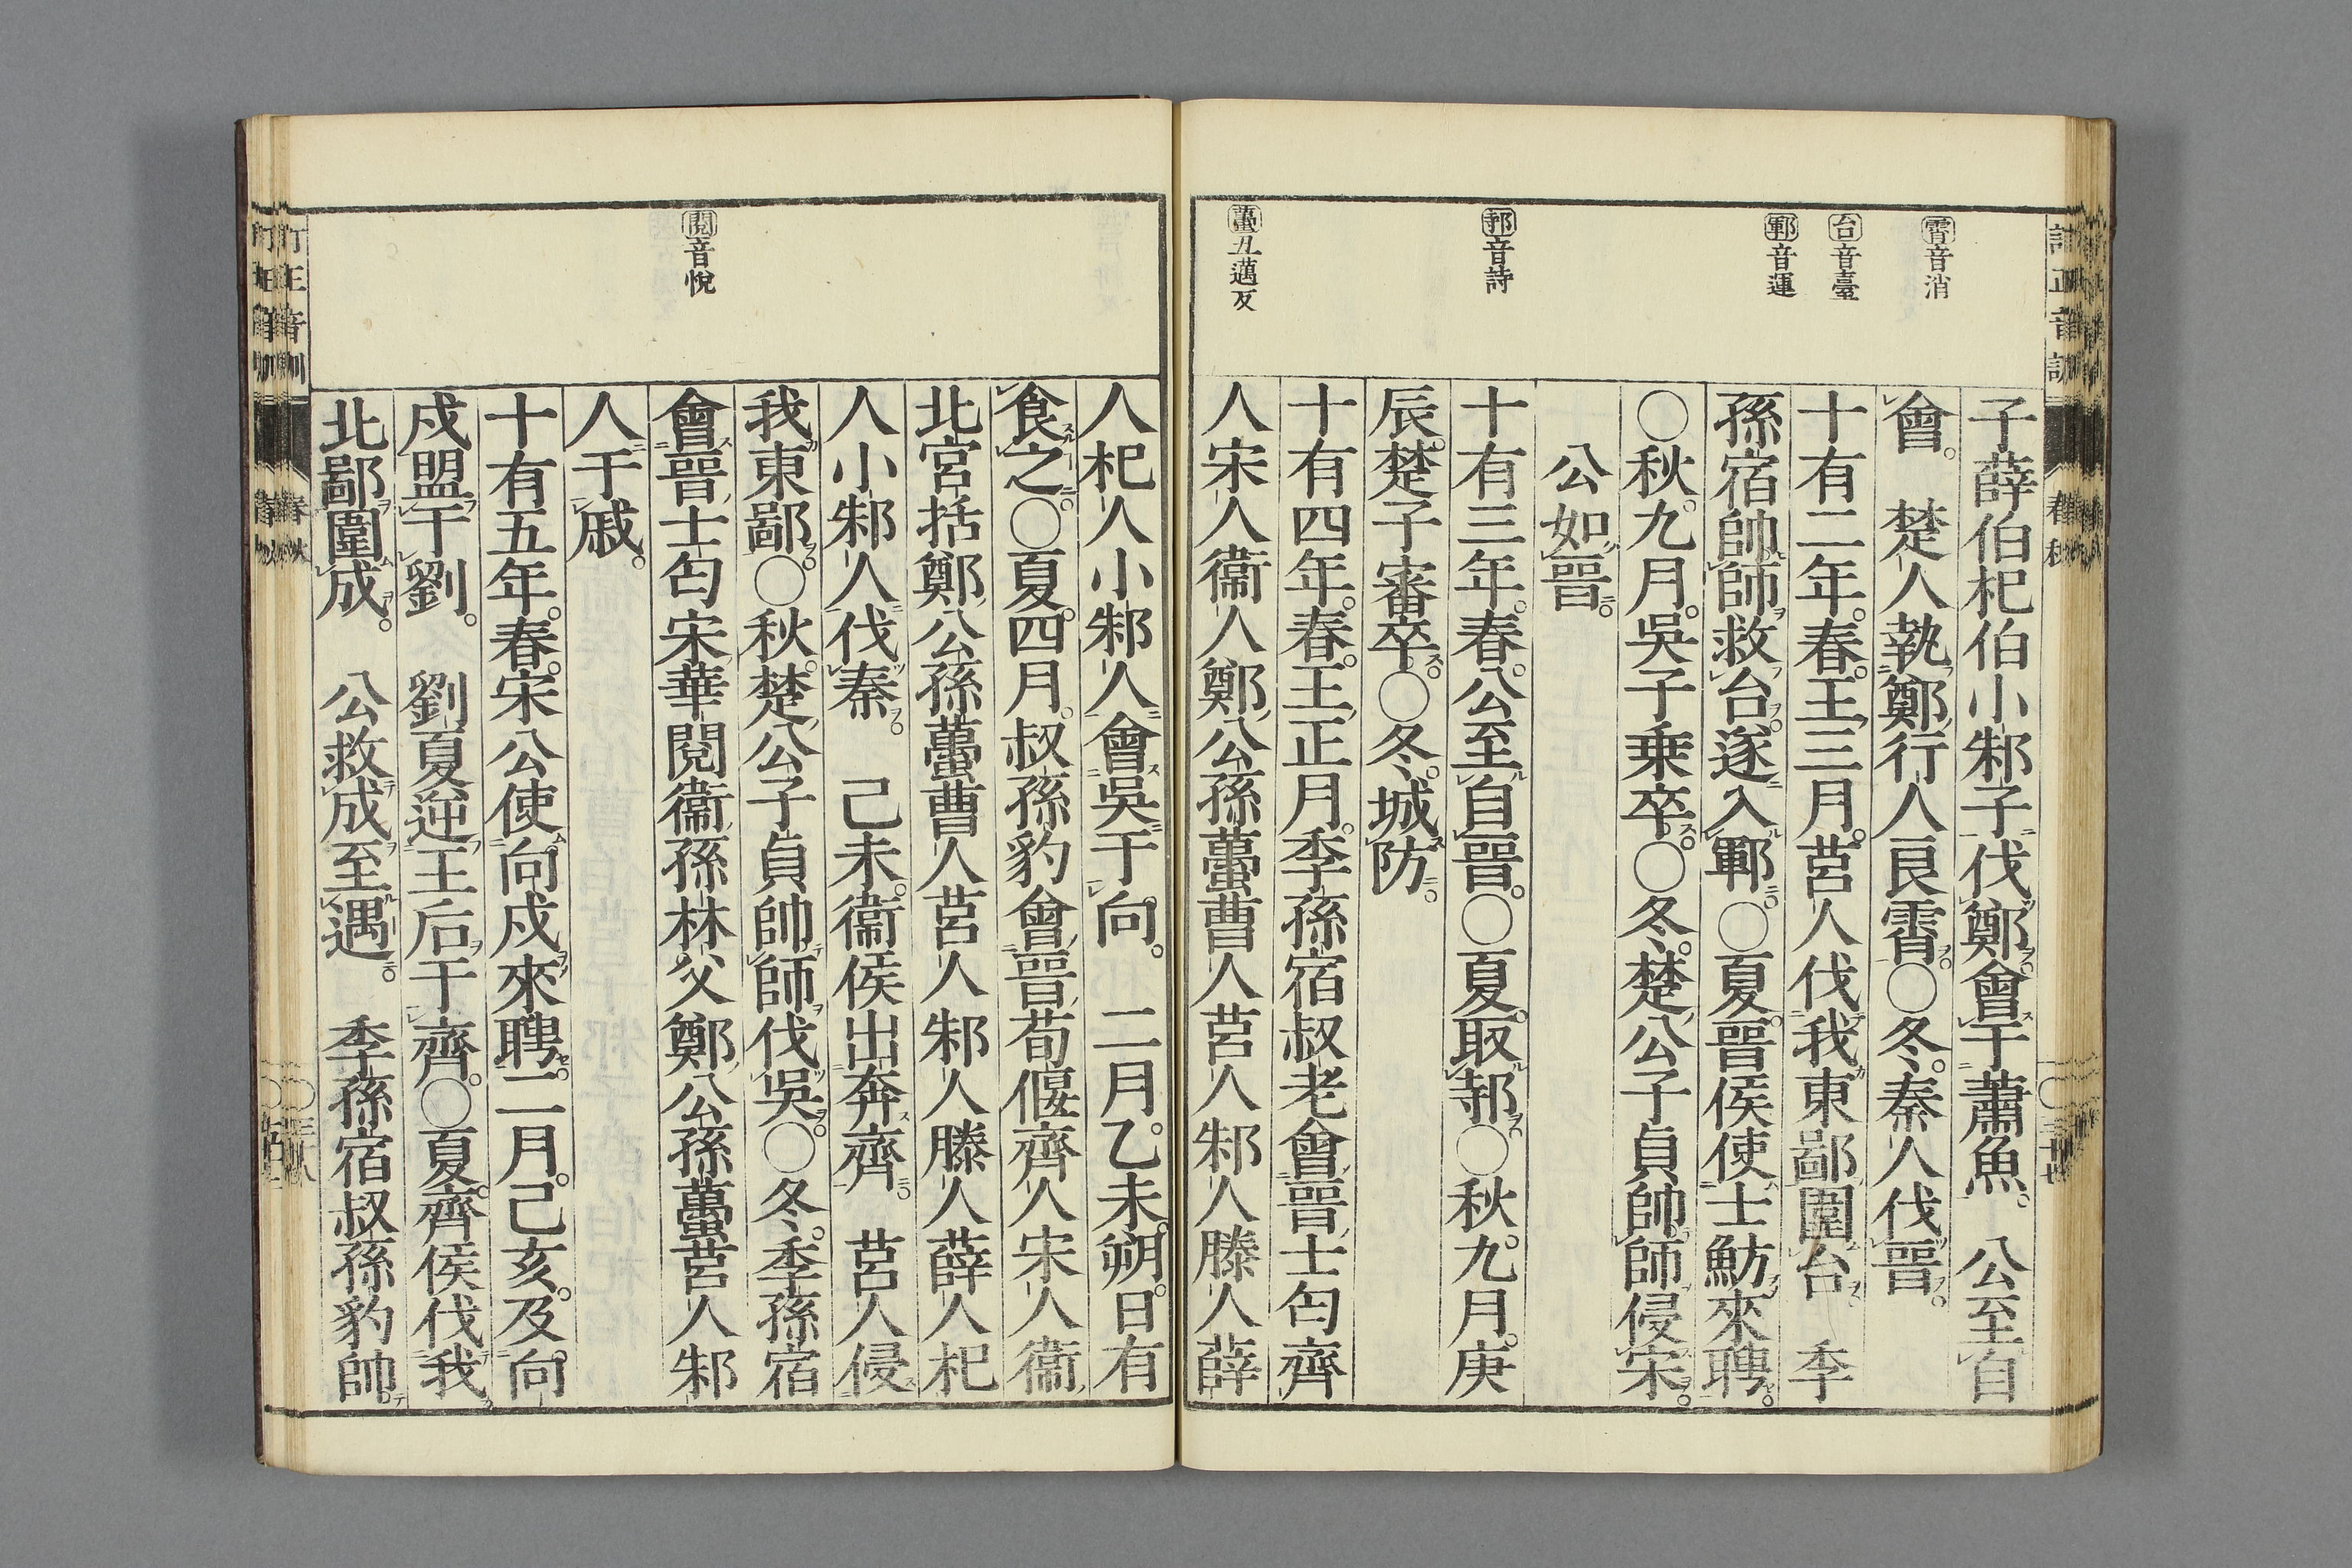 霄音消
台音臺
鄆音運
邿音詩
蠆丑邁反
子薛伯杞伯小邾子伐鄭會于蕭魚。公至自
會。楚人執鄭行人良霄〇冬秦人伐晉。
十有二年春王三月莒人伐我東鄙圍台季
孫宿帥師救台遂入鄆〇夏晉侯使士魴來聘
〇秋九月吳子乗卒〇冬楚公子貞帥師侵宋
公如晉。
十有三年春公至自晉〇夏取邿〇秋九月庚
辰楚子審卒〇冬城防。
十有四年春王正月季孫宿叔老會晉士匄齊
人宋人衞人鄭公孫蠆曹人莒人邾人滕人薛
閱音悅
人杞人小邾人會吳于向。二月乙未朔日有
食之〇夏四月叔孫豹會晉荀偃齊人宋人衞
北宮括鄭公孫蠆曹人莒人邾人滕人薛人杞
人小邾人伐秦。己未衞侯出奔齊。莒人侵
我東鄙〇秋楚公子貞帥師伐吳〇冬季孫宿
會晉士匄宋華閱衞孫林父鄭公孫蠆莒人邾
人于戚。
十有五年春宋公使向戍來聘二月己亥及向
戍盟于劉。劉夏逆王后于齊〇夏齊侯伐我
北鄙圍成。公救成至遇。季孫宿叔孫豹帥
春秋